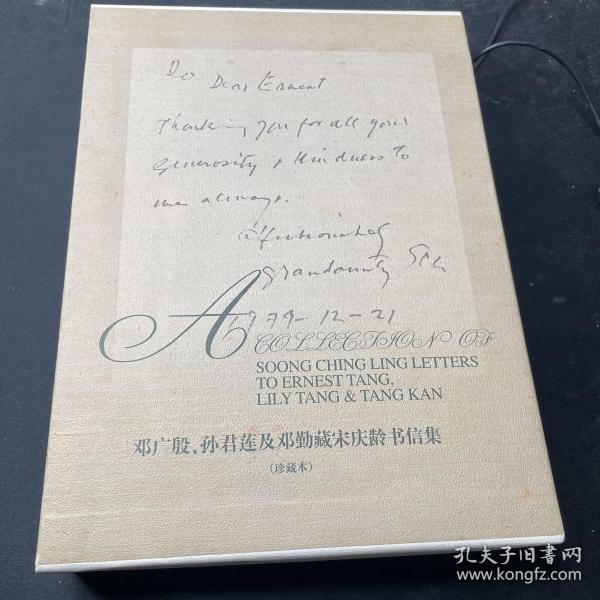 To Dear Ernest
Thanking you for all your
generosity & kindness to
me always.
Affectionately
Grandaunty SCL
1979-12-21
A
COLLECTION OF
SOONG CHING LING LETTERS
TO ERNEST TANG,
LILY TANG & TANG KAN
邓广殷、孙君莲及邓勤藏宋庆龄书信集
(珍藏本)
孔夫子旧书网
www.kongfz.com